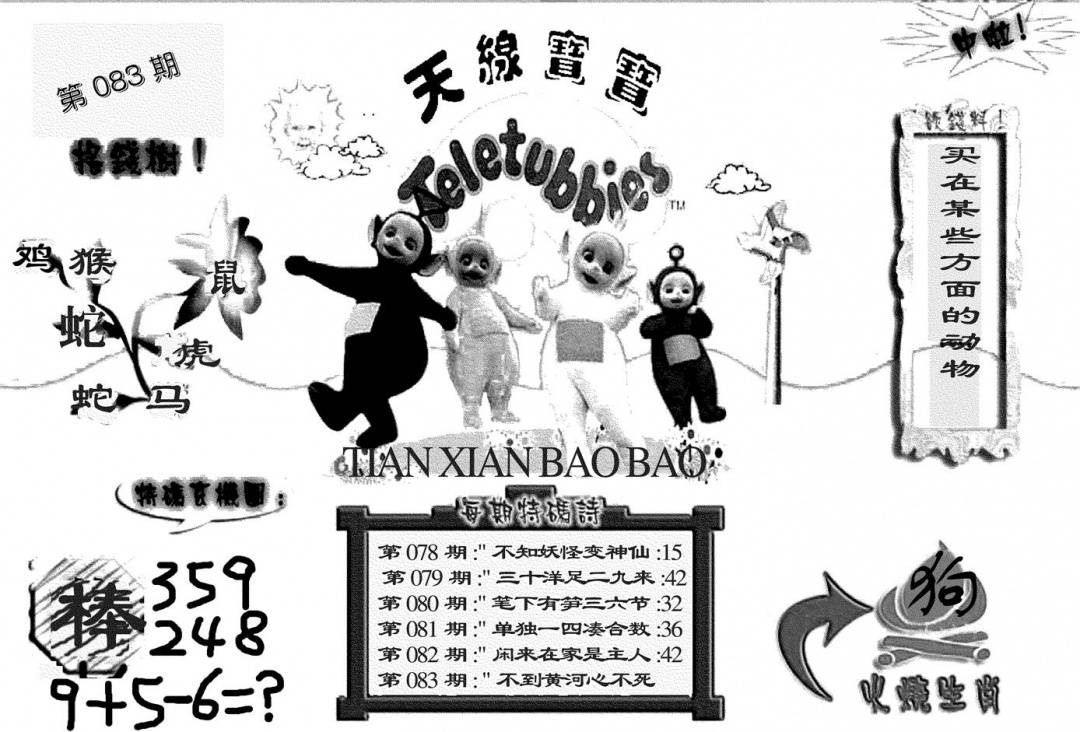 第 083 期
天線寶寶
中啦！
Teletubbies
TM
摇錢樹！
鸡
猴
鼠
蛇
虎
蛇
马
买在某些方面的动物
TIAN XIAN BAO BAO
特碼玄機圖：
每期特碼詩
第 078 期 :" 不知妖怪变神仙 :15
第 079 期 :" 三十洋足二九来 :42
第 080 期 :" 笔下有笋三六节 :32
第 081 期 :" 单独一四凑合数 :36
第 082 期 :" 闲来在家是主人 :42
第 083 期 :" 不到黄河心不死
棒
359
248
9+5-6=?
狗
火燒生肖